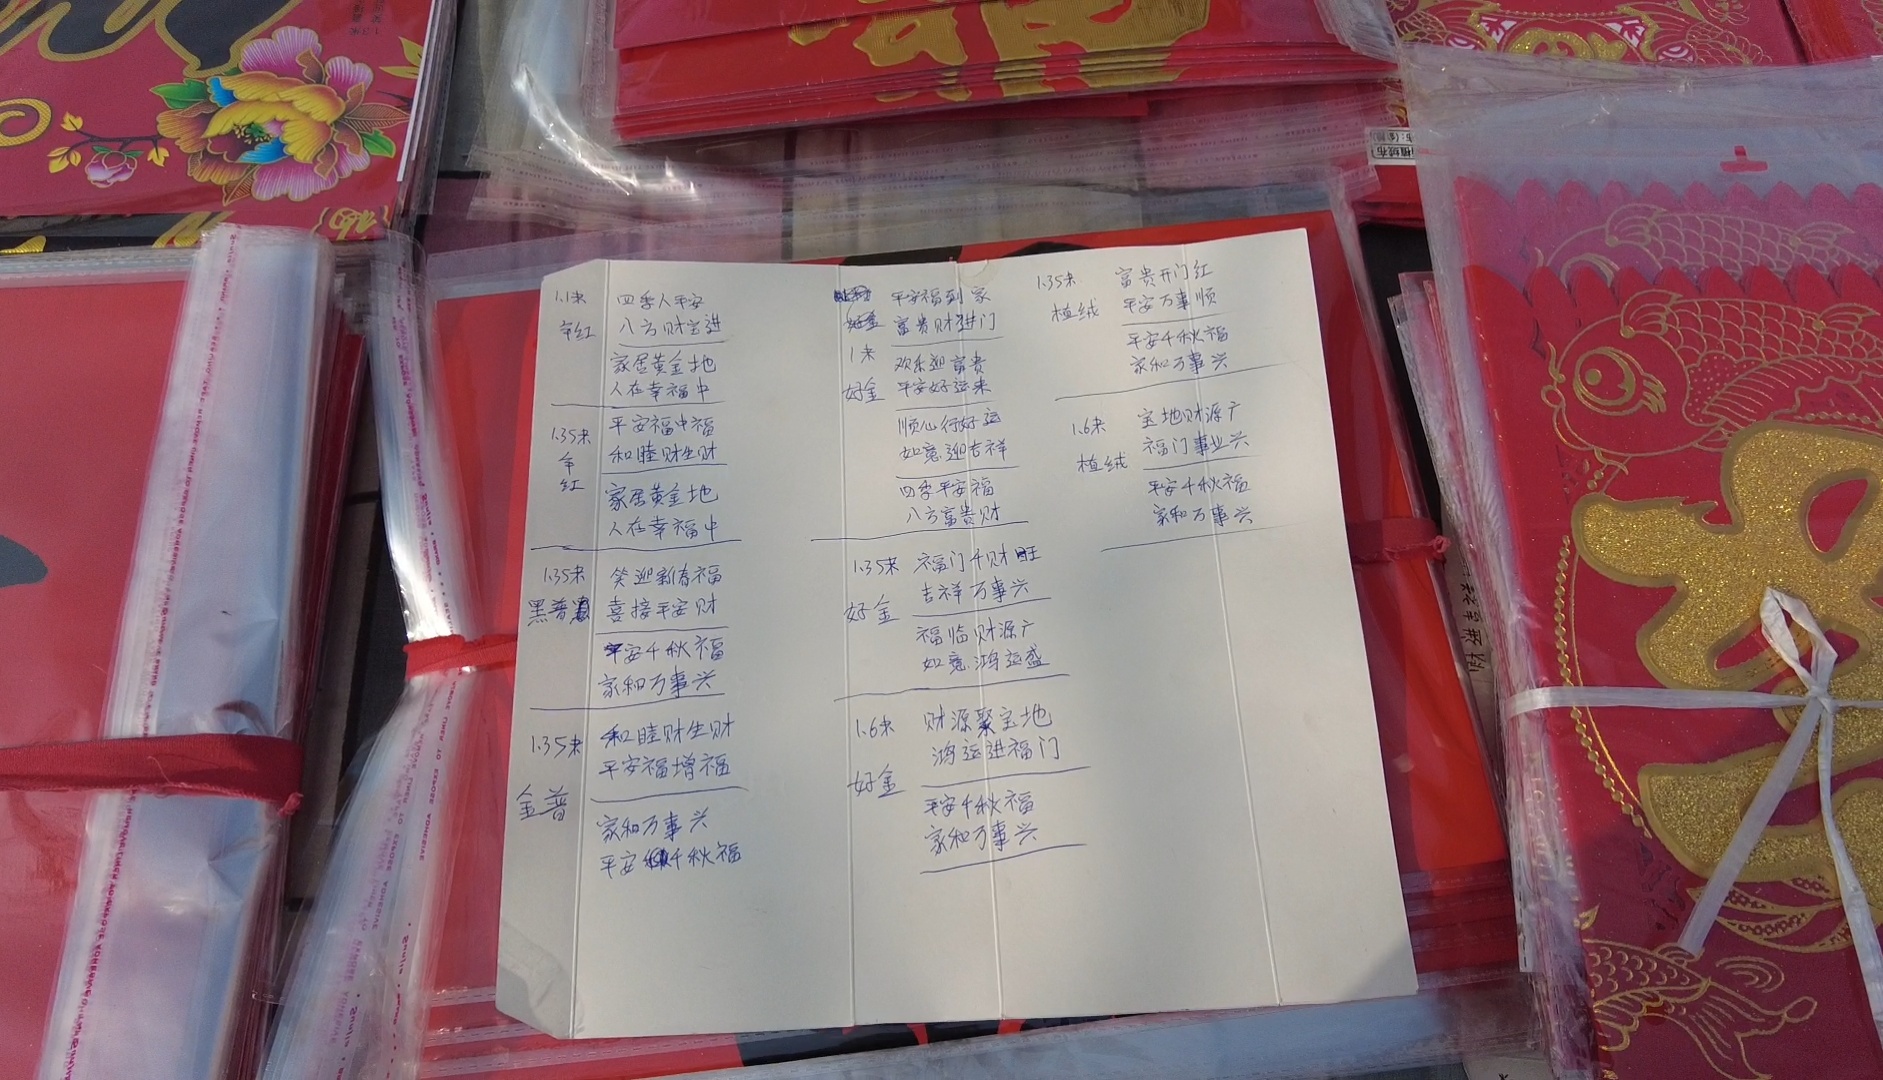 1.1米
四季人平安
年红
八方财宝进
家居黄金地
人在幸福中
1.35米
年红
平安福中福
和睦财生财
家居黄金地
人在幸福中
1.35米
黑普
笑迎新春福
喜接平安财
平安千秋福
家和万事兴
1.35米
金普
和睦财生财
平安福增福
家和万事兴
平安千秋福
平安福到家
富贵财进门
1米
好金
欢乐迎富贵
平安好运来
顺心行好运
如意迎吉祥
四季平安福
八方富贵财
1.35米
好金
福门千财旺
吉祥万事兴
福临财源广
如意鸿运盛
1.6米
好金
财源聚宝地
鸿运进福门
平安千秋福
家和万事兴
1.35米
植绒
富贵开门红
平安万事顺
平安千秋福
家和万事兴
1.6米
植绒
宝地财源广
福门事业兴
平安千秋福
家和万事兴